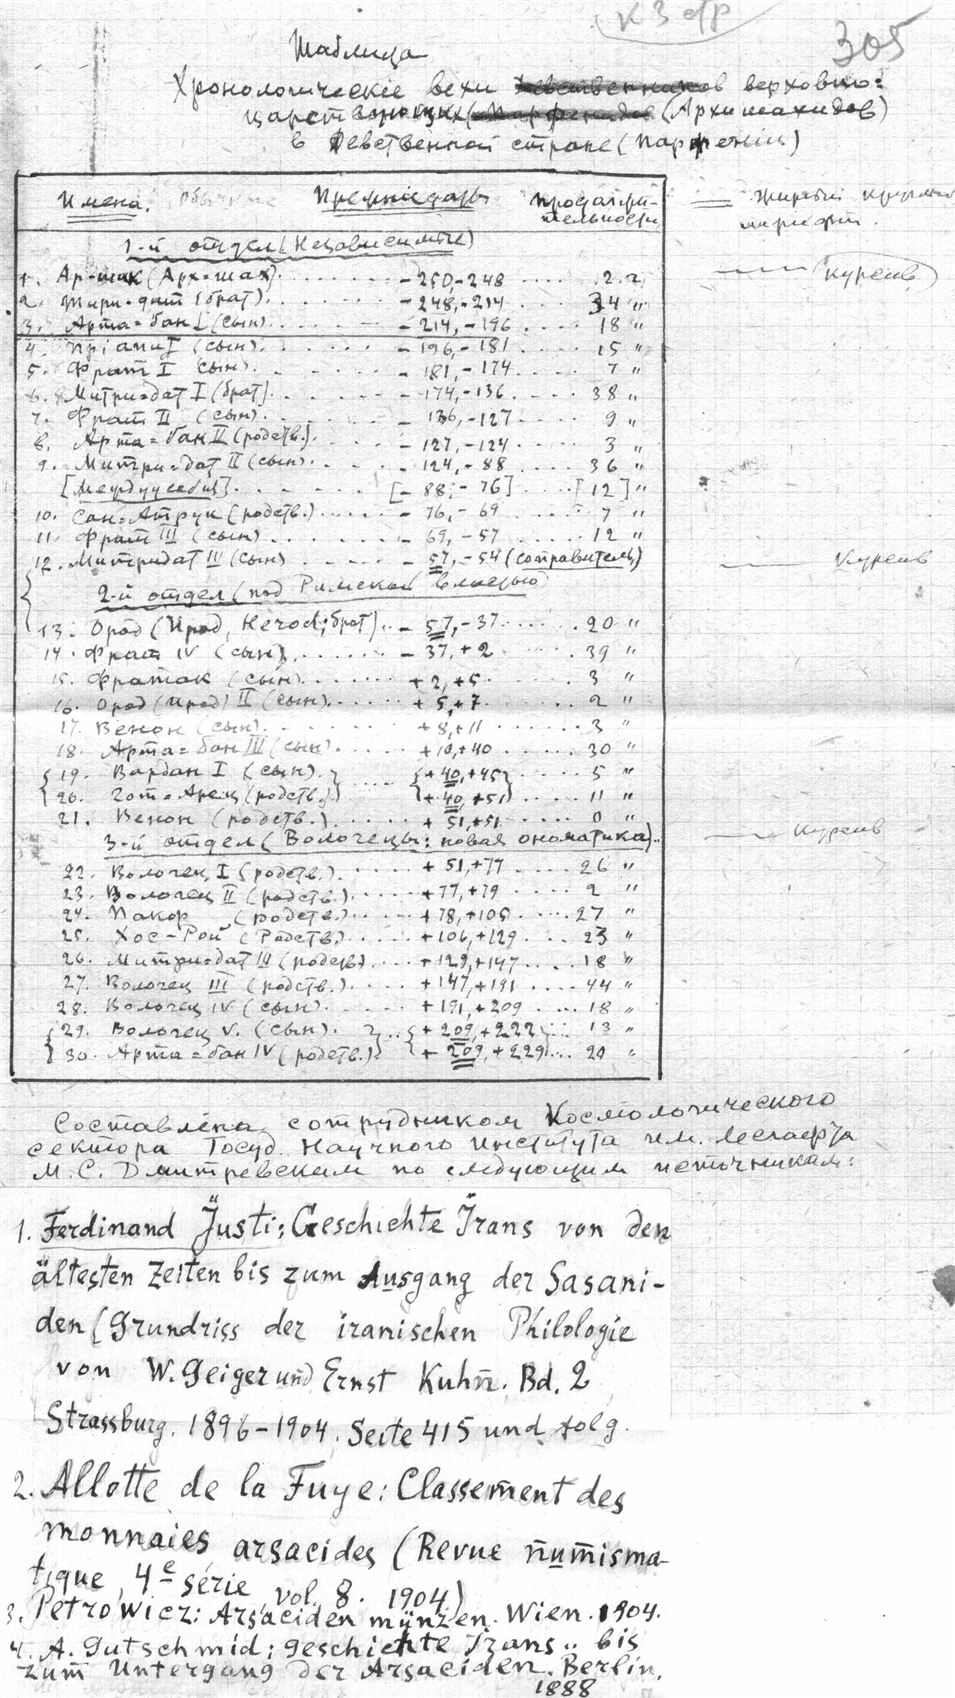 К 3 стр
305
Таблица
Хронологические вехи девственников верховно:
царствующих (Парфенидов) (Архишахидов)
в Девственной стране (Парфении)
Имена. Обычные Президарь Продолжи-
тельность
Жирный крупный
шрифт.
1-й отдел (Независимые)
1. Ар-шак (Арх=шах) - 250,-248 2 г.
курсив
2. Тири=дат (брат) - 248,-214 34 "
3. Арта=бан I (сын) - 214,-196 18 "
4. Пріапат (сын) - 196,-181 15 "
5. Фраат I (сын) - 181,-174 7 "
6. Митри=дат I (брат) - 174,-136 38 "
7. Фраат II (сын) - 136,-127 9 "
8. Арта=бан II (родств.) - 127,-124 3 "
9. Митри=дат II (сын) - 124,-88 36 "
[Междуусобие] [- 88,-76] [12] "
10. Сан=Атрук (родств.) - 76,-69 7 "
11. Фраат III (сын) - 69,-57 12 "
12. Митридат III (сын) - 57,-54 (соправитель)
Курсив
2-й отдел (под Римской властью)
13. Ород (Ирод, Herod; брат) - 57,-37 20 "
14. Фраат IV (сын) - 37,+2 39 "
15. Фратак (сын) + 2,+5 3 "
16. Ород (Ирод) II (сын) + 5,+7 2 "
17. Венон (сын) + 8,+11 3 "
18. Арта=бан III (сын) +10,+40 30 "
{19. Вардан I (сын)} {+40,+45} 5 "
{20. Гот=Арец (родств.)} {+40,+51} 11 "
21. Венон (родств.) + 51,+51 0 "
3-й отдел (Вологецы: новая ономатика)
Курсив
22. Вологец I (родств.) + 51,+77 26 "
23. Вологец II (родств.) +77,+79 2 "
24. Пакор (родств.) +78,+105 27 "
25. Хос-Рой (Родств.) +106,+129 23 "
26. Митри=дат IV (родств) +129,+147 18 "
27. Вологец III (родств.) +147,+191 44 "
28. Вологец IV (сын) +191,+209 18 "
{29. Вологец V. (сын)} {+209,+222} 13 "
{30. Арта=бан IV (родств.)} {+ 209,+229} 20 "
Составлена сотрудником Космологического
сектора Госуд. Научного Института им. Лесгафта
М.С. Дмитревским по следующим источникам:
1. Ferdinand Justi; Geschichte Irans von den
ältesten Zeiten bis zum Ausgang der Sasani-
den (Grundriss der iranischen Philologie
von W. Geiger und Ernst Kuhn. Bd. 2
Strassburg. 1896-1904. Seite 415 und folg.
2. Allotte de la Fuye: Classement des
monnaies arsacides (Revue numisma-
tique, 4e série, vol. 8. 1904)
3. Petrowicz: Arsaciden münzen. Wien. 1904.
4. A. Gutschmid; geschichte Irans .. bis
zum Untergang der Arsaciden. Berlin.
1888